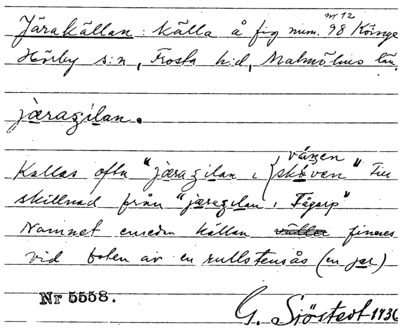 Järakällan: källa å fig num. 98 Köinge
nr 12
Hörby s:n, Frosta h:d, Malmöhus län.
järagilan.
Kallas ofta "järagilan i skoven" Till
vången
skillnad från "järagilan i Fågarp"
Namnet enedan källan finnes
vid foten av en rullstensås (en jär)
Nr 5558.
G. Sjöstedt 1936